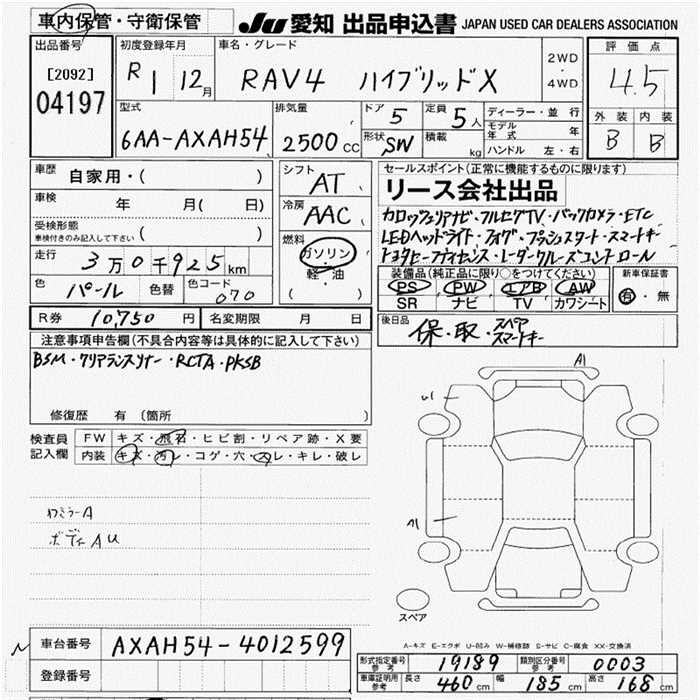 車内保管・守衛保管
JU 愛知 出品申込書 JAPAN USED CAR DEALERS ASSOCIATION
出品番号 初度登録年月 車名・グレード 評価点
[2092] 04197 R1 12月 RAV4 ハイブリッドX 2WD・4WD 4.5
型式 排気量 ドア 5 定員 5人 ディーラー・並行 外装 内装
6AA-AXAH54 2500 CC 形状 SW 積載 kg モデル年式 年 B B
ハンドル 左・右
車歴 自家用・( )
車検 年 月( 日)
受検形態 車検付きのみ記入して下さい ( )
走行 3万0千925km
色 パール 色替 色コード 070
シフト AT
冷房 AAC
燃料 ガソリン・軽・油 ( )
セールスポイント(正常に機能するものに限ります)
リース会社出品
カロッツェリアナビ・フルセグTV・バックカメラ・ETC
LEDヘッドライト・フォグ・プッシュスタート・スマートキー
トヨタセーフティセンス・レーダークルーズコントロール
装備品(純正品に限り○をつけてください) 新車保証書
PS PW エアB AW 有・無
SR ナビ TV カワシート
R券 10,750円 名変期限 月 日
後日品 保・取・スペアスマートキー
注意事項申告欄(不具合内容等は具体的に記入して下さい)
BSM・クリアランスソナー・RCTA・PKSB
修復歴 有 (箇所 )
検査員記入欄 FW キズ・飛石・ヒビ割・リペア跡・X要
内装 キズ・汚レ・コゲ・穴・スレ・キレ・破レ
A1
U1
A1
ワミラーA
ボディAU
スペア
A-キズ E-エクボ U-凹み W-補修跡 S-サビ C-腐食 XX-交換済
N 車台番号 AXAH54-4012599
登録番号
形式指定番号 参考 19189 類別区分番号 参考 0003
車庫証明用 参考 長さ 460 cm 幅 185 cm 高さ 168 cm